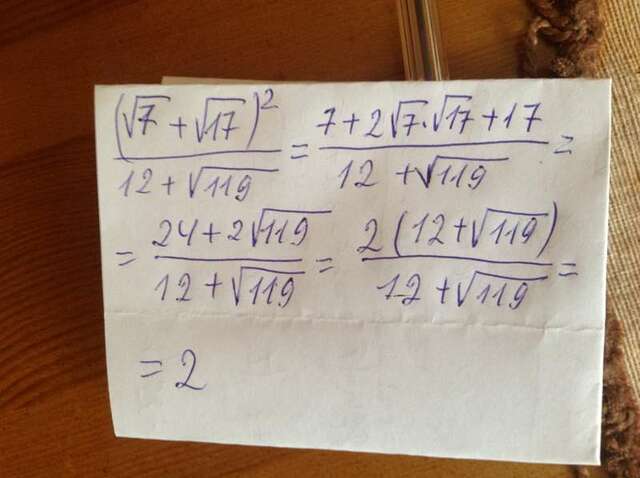 (√7 + √17)² / 12 + √119 = 7 + 2√7·√17 + 17 / 12 + √119 =
= 24 + 2√119 / 12 + √119 = 2(12 + √119) / 12 + √119 =
= 2